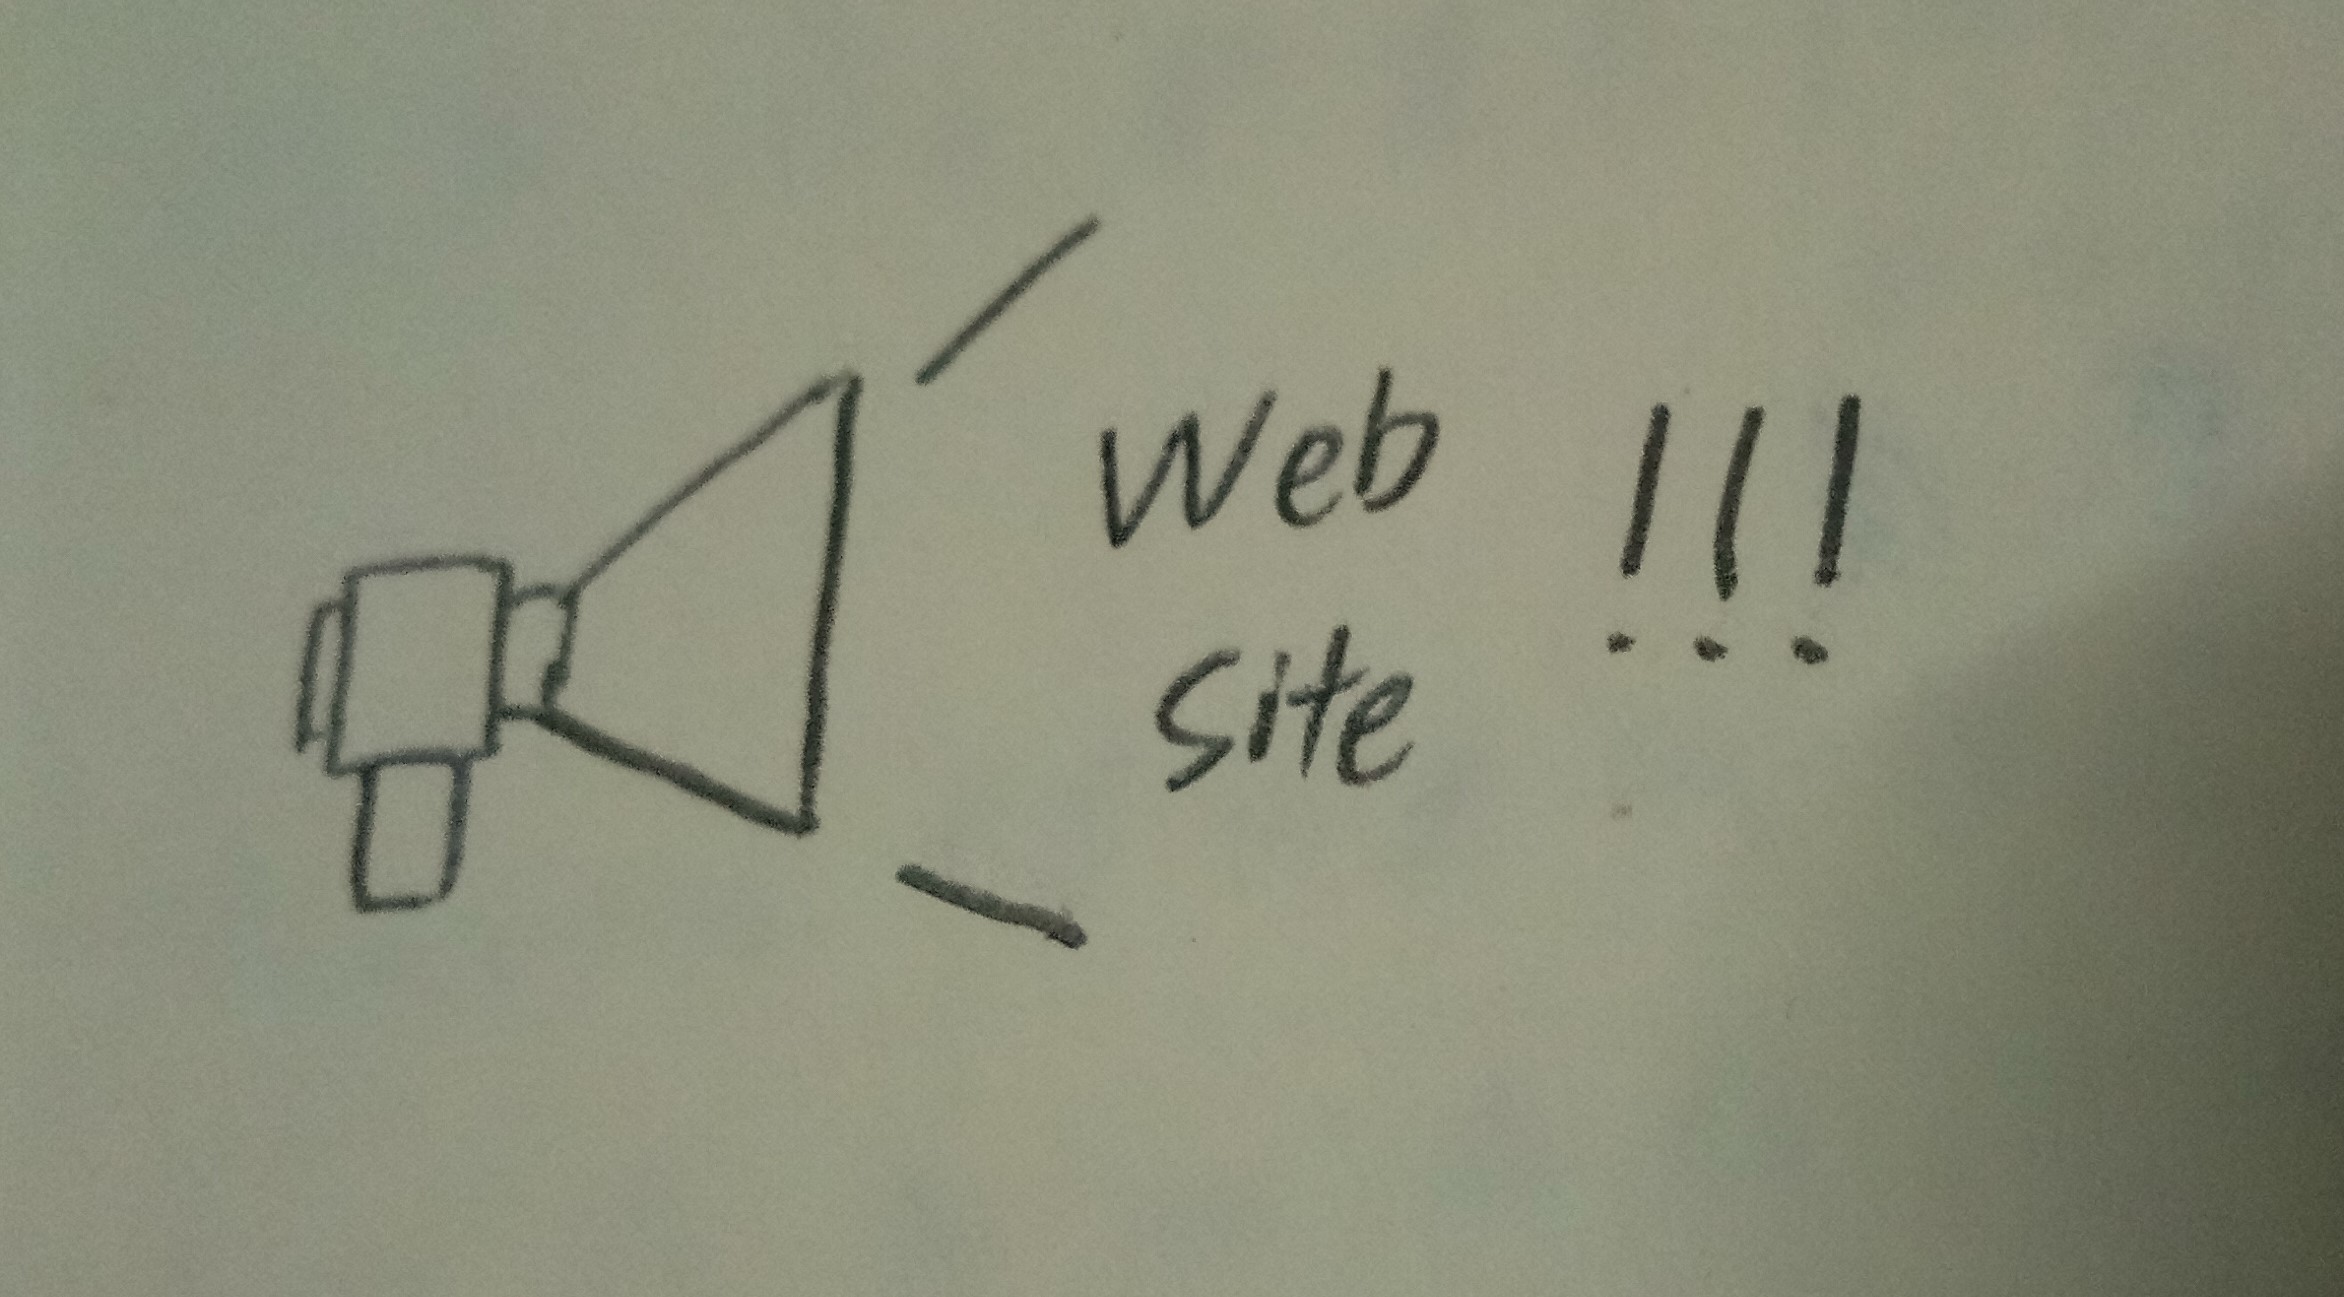 Web !!!
Site